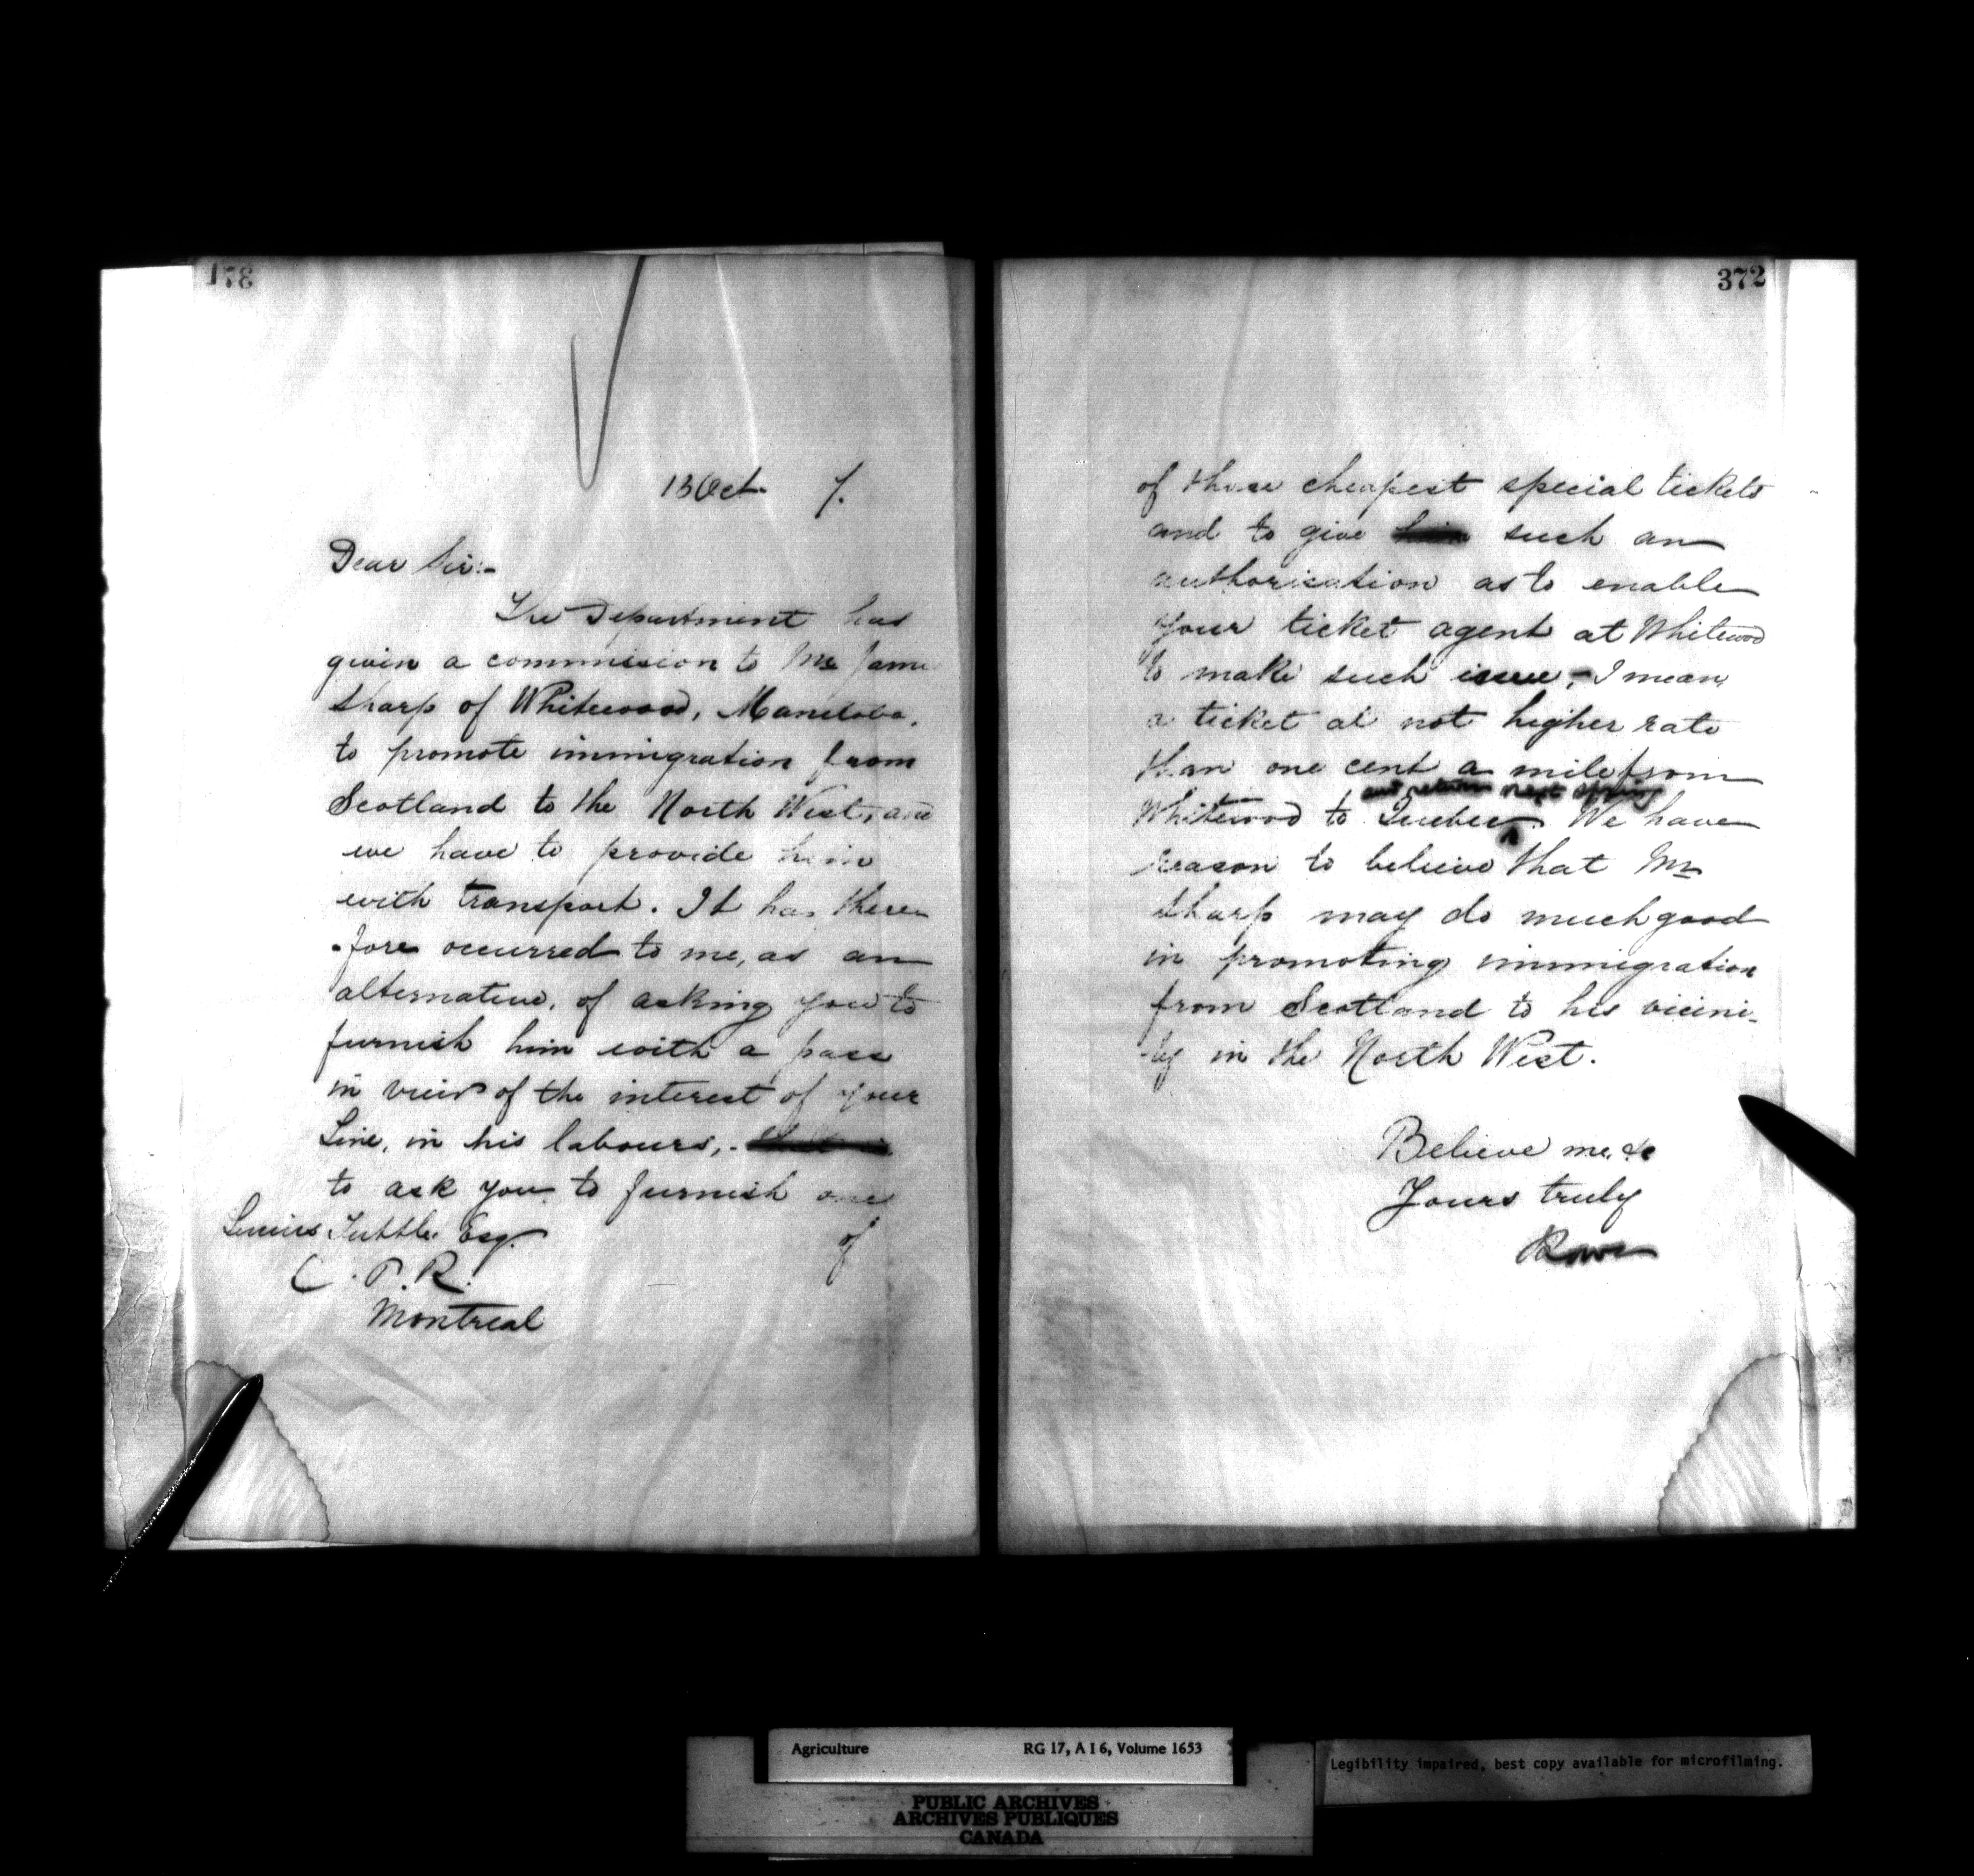 371
13 Oct. 7.
Dear Sir:-
The Department has
given a commission to Mr. James
Sharp of Whitewood, Manitoba,
to promote immigration from
Scotland to the North West, and
we have to provide him
with transport. It has there-
-fore occurred to me, as an
alternative, of asking you to
furnish him with a pass
in view of the interest of your
Line, in his labours,-
to ask you to furnish one
of
Lucius Tuttle Esq.
C.P.R.
Montreal
372
of those cheapest special tickets
and to give him such an
authorisation as to enable
your ticket agent at Whitewood
to make such issue,- I mean
a ticket at not higher rate
than one cent a mile from
and return next spring
Whitewood to Quebec. We have
reason to believe that Mr
Sharp may do much good
in promoting immigration
from Scotland to his vicini-
-ty in the North West.
Believe me, &c
Yours truly
Agriculture RG 17, A I 6, Volume 1653
Legibility impaired, best copy available for microfilming.
PUBLIC ARCHIVES
ARCHIVES PUBLIQUES
CANADA